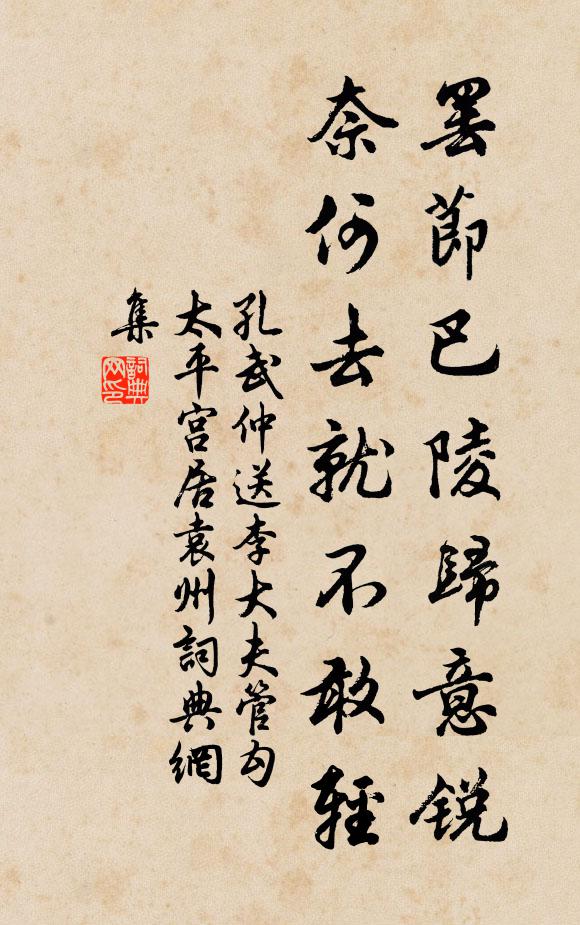 罢節巴陵歸意銳
奈何去就不敢輕
孔武仲送李大夫管勾
太平宫居袁州詞典網
集
詞典
网印